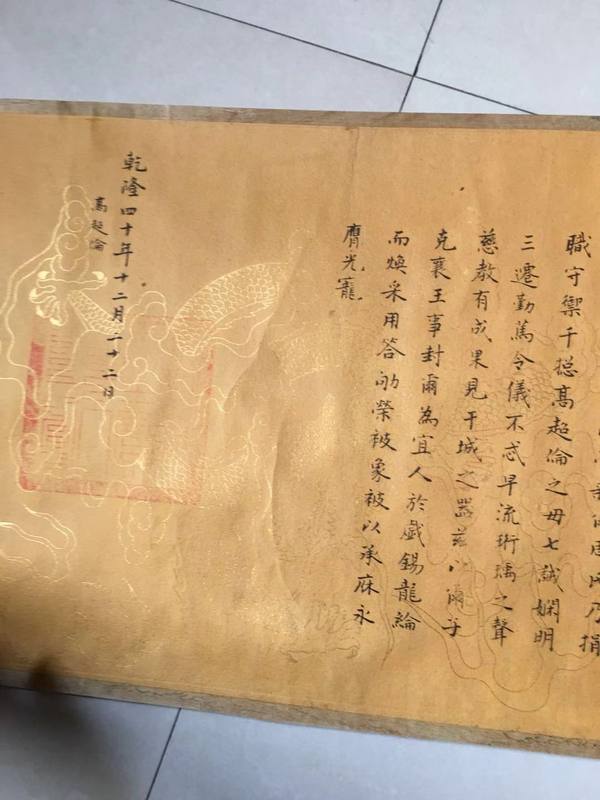 乃捐
職守禦千捴髙超倫之毋七誡嫻明
三遷勤篤令儀不忒早流珩瑀之聲
慈教有成果見干城之器茲以爾子
克襄王事封爾為宜人於戲錫龍綸
而煥采用答劬榮被象被以承庥永
膺光寵
乾隆四十年十二月二十二日
髙超倫